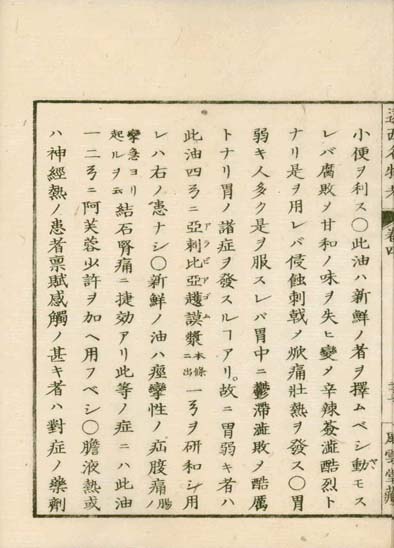 遠西名物考 卷四 風雲堂藏
小便ヲ利ス〇此油ハ新鮮ノ者ヲ擇ムベシ動モス
レバ腐敗メ甘和ノ味ヲ失ヒ變メ辛辣薟澁酷烈ト
ナリ是ヲ用レバ侵蝕刺戟メ焮痛壯熱ヲ發ス〇胃
弱キ人多ク是ヲ服スレバ胃中ニ鬱滯澁敗メ酷厲
トナリ胃ノ諸症ヲ發スルヿアリ故ニ胃弱キ者ハ
此油四ヲニ亞剌比亞護謨漿本條ニ出一ヲヲ研和シ用
レハ右ノ患ナシ〇新鮮ノ油ハ痙攣性ノ疝腹痛腸ノ
攣急ヨリ起ルヲ云結石腎痛ニ捷効アリ此等ノ症ニハ此油
一二ヲニ阿芙蓉少許ヲ加ヘ用フベシ〇膽液熱或
ハ神經熱ノ患者稟賦感觸ノ甚キ者ハ對症ノ藥劑